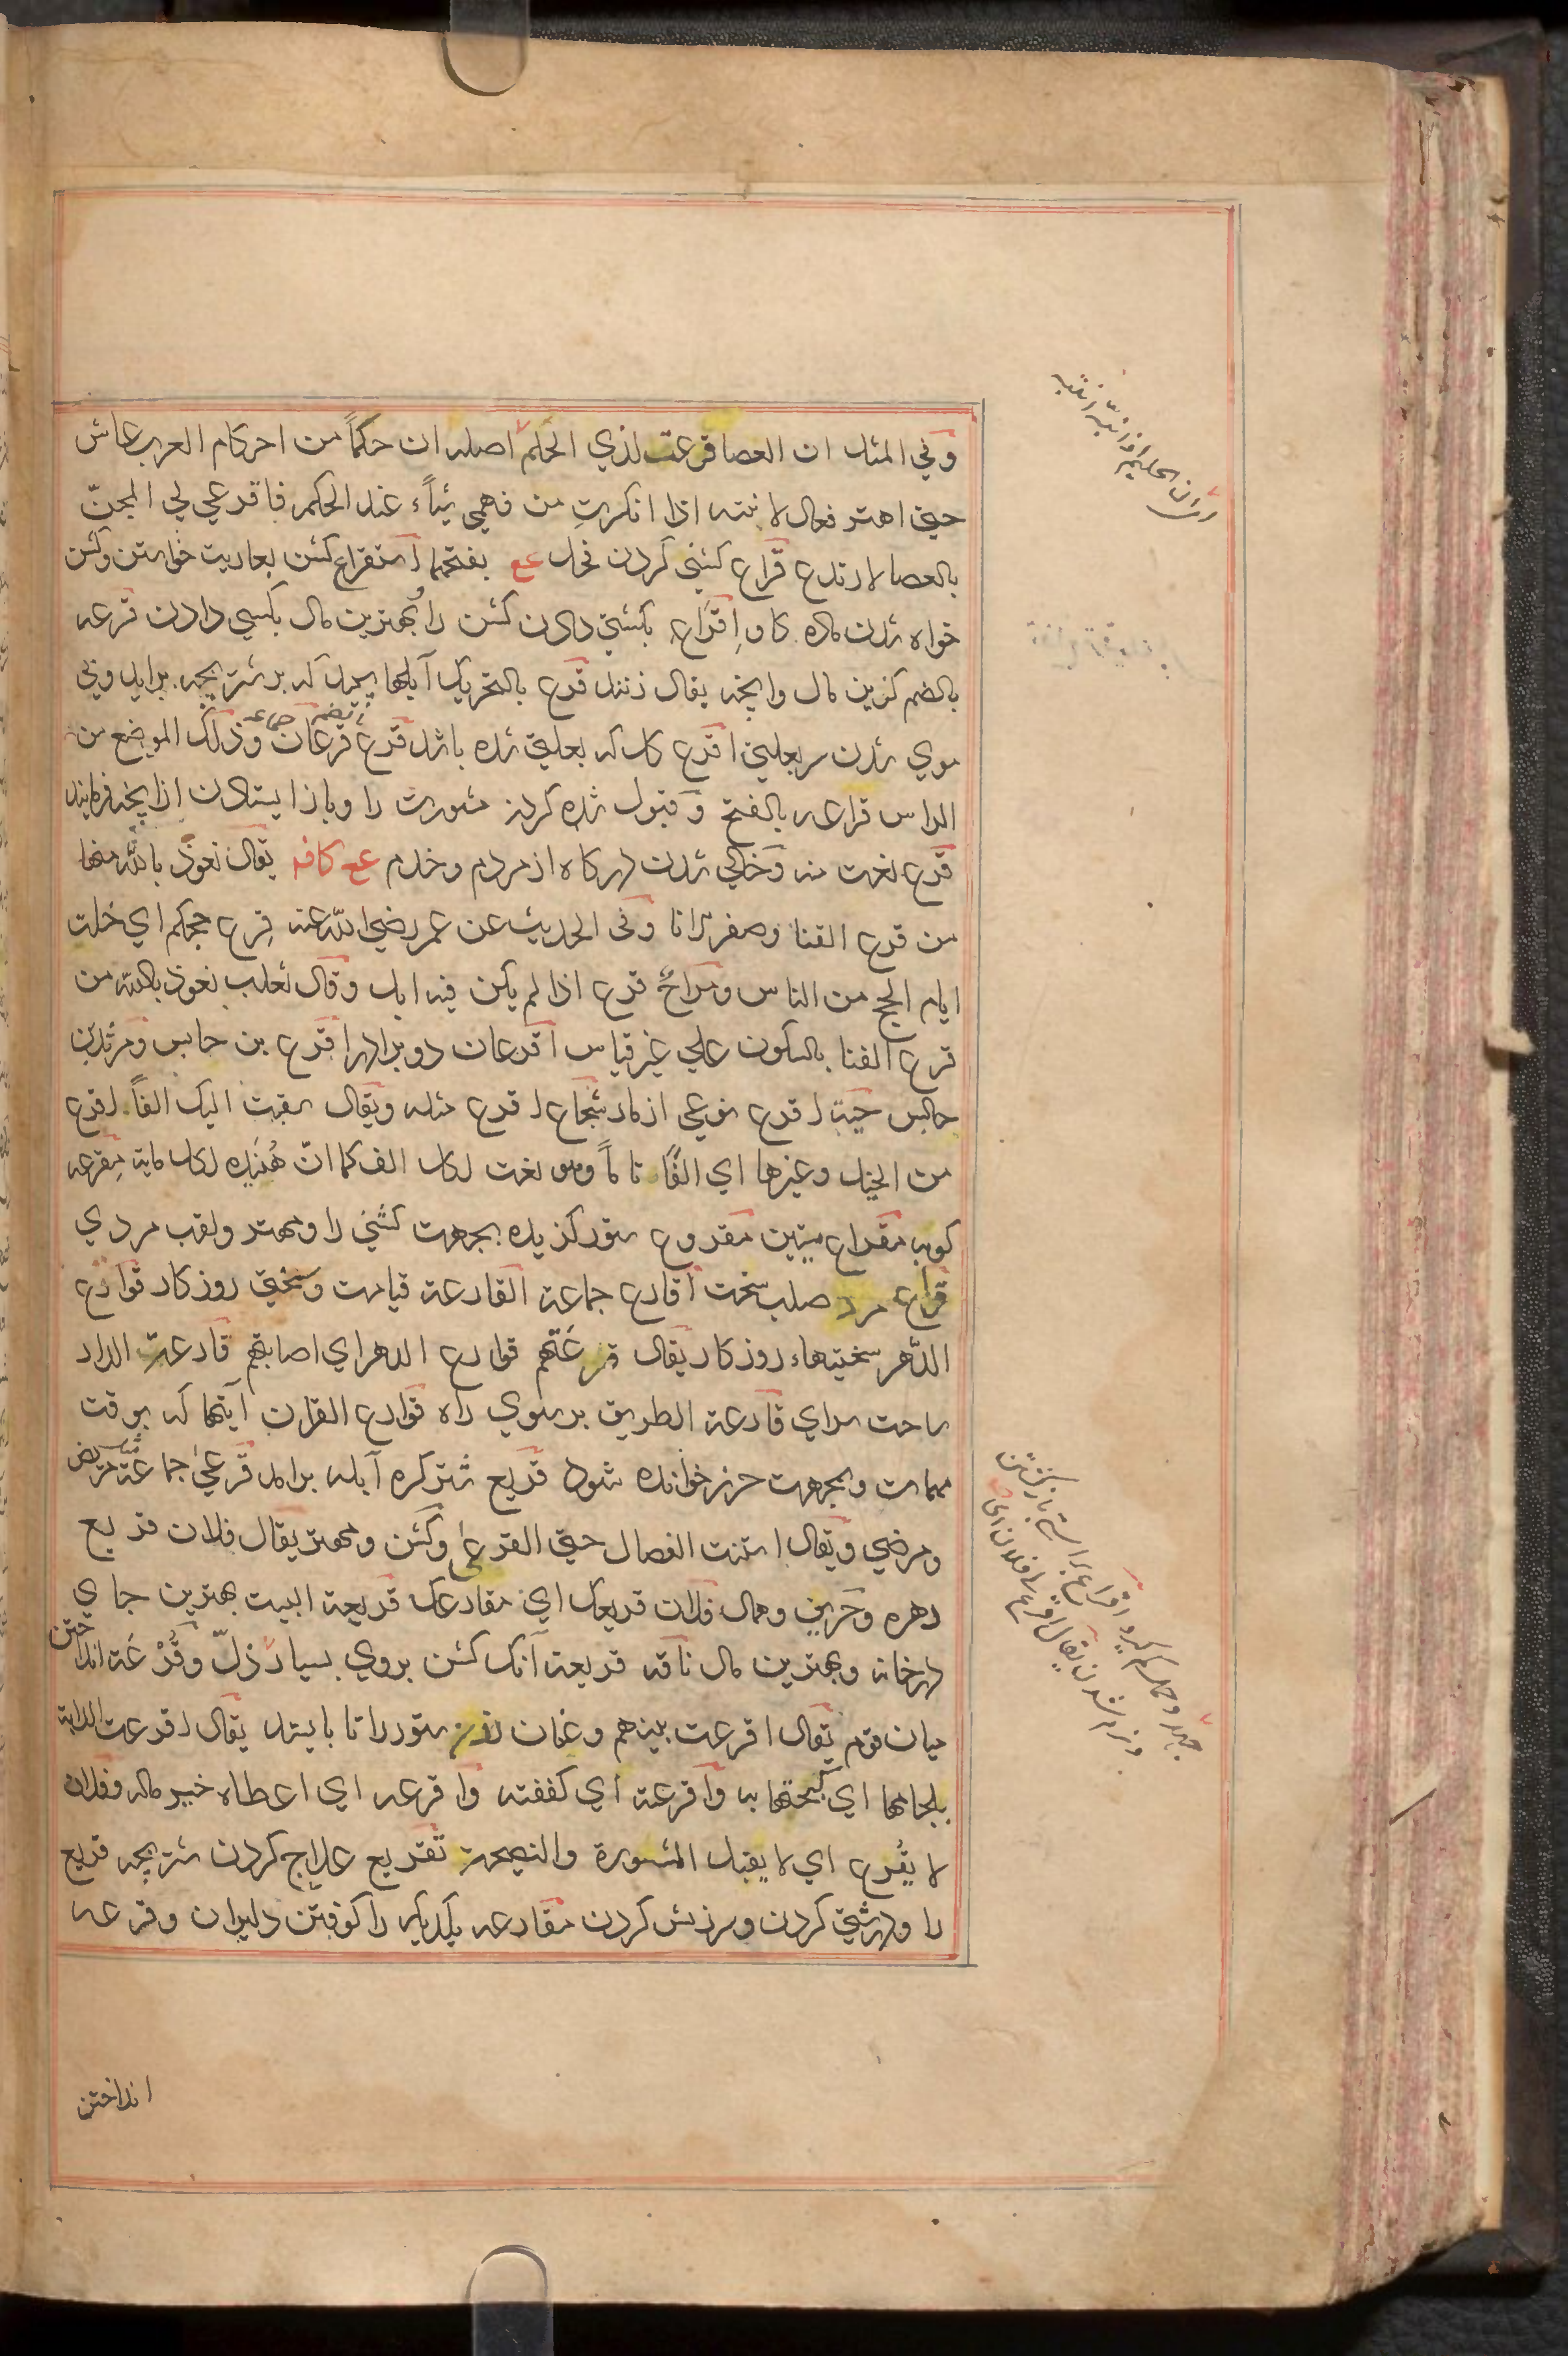 وفي المثل ان العصا قرعت لذي الحلم اصله ان حكماً من احكام العرب عاش
حتى اهتر فعال لابنته اذا انكرتِ من فهمي شياًء عند الحكم فاقرعي لي المجنّ
بالعصا لارتدع قراع كشني كردن فحل عع بفتحهما استقراع كشن بعاريت خواستن وكشن
خواه شدن ماده كاو اِقراع بكشني دادن كشن را وبهترين مال بكسي دادن قرعه
بالضم كزين مال وانچه يقال زنند قرع بالتحريك آبلها سپيد كه بر شتر بچه برايد وبي
موي شدن سر بعلتي اقرع كل كه بعلتي شده باشد قرع قرعان بضمهما جماعه وذلك الموضع من
الراس قراعه بالفتح وقبول شده كردن مشورت را وباز ايستادن ازانچه فرمايند
قرع لغت منه وخالي شدن دركاه از مردم وخدم عع كافه يقال نعوذ بالله منها
من قرع الفنا وصفر الانا وفى الحديث عن عمر رضي الله عنه قرع حجكم اي خلت
ايام الحج من الناس ومراحٌ قرع اذا لم يكن فيه ابل وقال ثعلب نعوذ بالله من
قرع الفنا بالسكون علي غير قياس اقرعان دو برادر اقرع بن حابس ومرثد بن
حابس حية اقرع نوعي از مار شجاع اقرع مثله ويقال سقت اليك الفاً اقرع
من الخيل وغيرها اي الفًا تاماً وهو نغت لكل الف كما انّ هُنَيده لكل ماية مِقرعه
كوبه مقراع ميتين مقروع ستور كزيده بجهت كشني را ومهتر ولقب مردي
قراع مرد صلب سخت اقارع جماعة القارعة قيامت وسختي روزكار قوارع
الدّهر سختيهاء روزكار يقال قرعَتهم قوارع الدهر اي اصابتهم قارعة الدار
ساحت سراي قارعة الطريق بر سوي راه قوارع القران آيتها كه بوقت
مهمات وبجهت حرز خوانده شود قريع شتر كره آبله برامد قرعىٰ جماعة مثل مريض
ومرضي ويقال استنت الفصال حتى القرعىٰ وكشن ومهتر يقال فلان قريع
دهره وحريف وهمال فلان قريعك اي مقارعك قريعة البيت بهترين جاي
درخانه وبهترين مال ناقه قريعة آنك كشن بروي بسيار ذلّ وقُرْعَة انداختن
ميان قوم يقال اقرعت بينهم وعنان زدن ستور را تا بايستد يقال اقرعت الدابة
بلجامها اي كبحتها به واقرعته اي كففته واقرعه اي اعطاه خير ماله وفلان
لا يُقرع اي لا يقبل المشورة والنصيحة تقريع علاج كردن شتر بچه قريع
را ودرشتي كردن وسرزنش كردن مقارعه يكديكر را كوفتن دليران وقرعه
انداختن